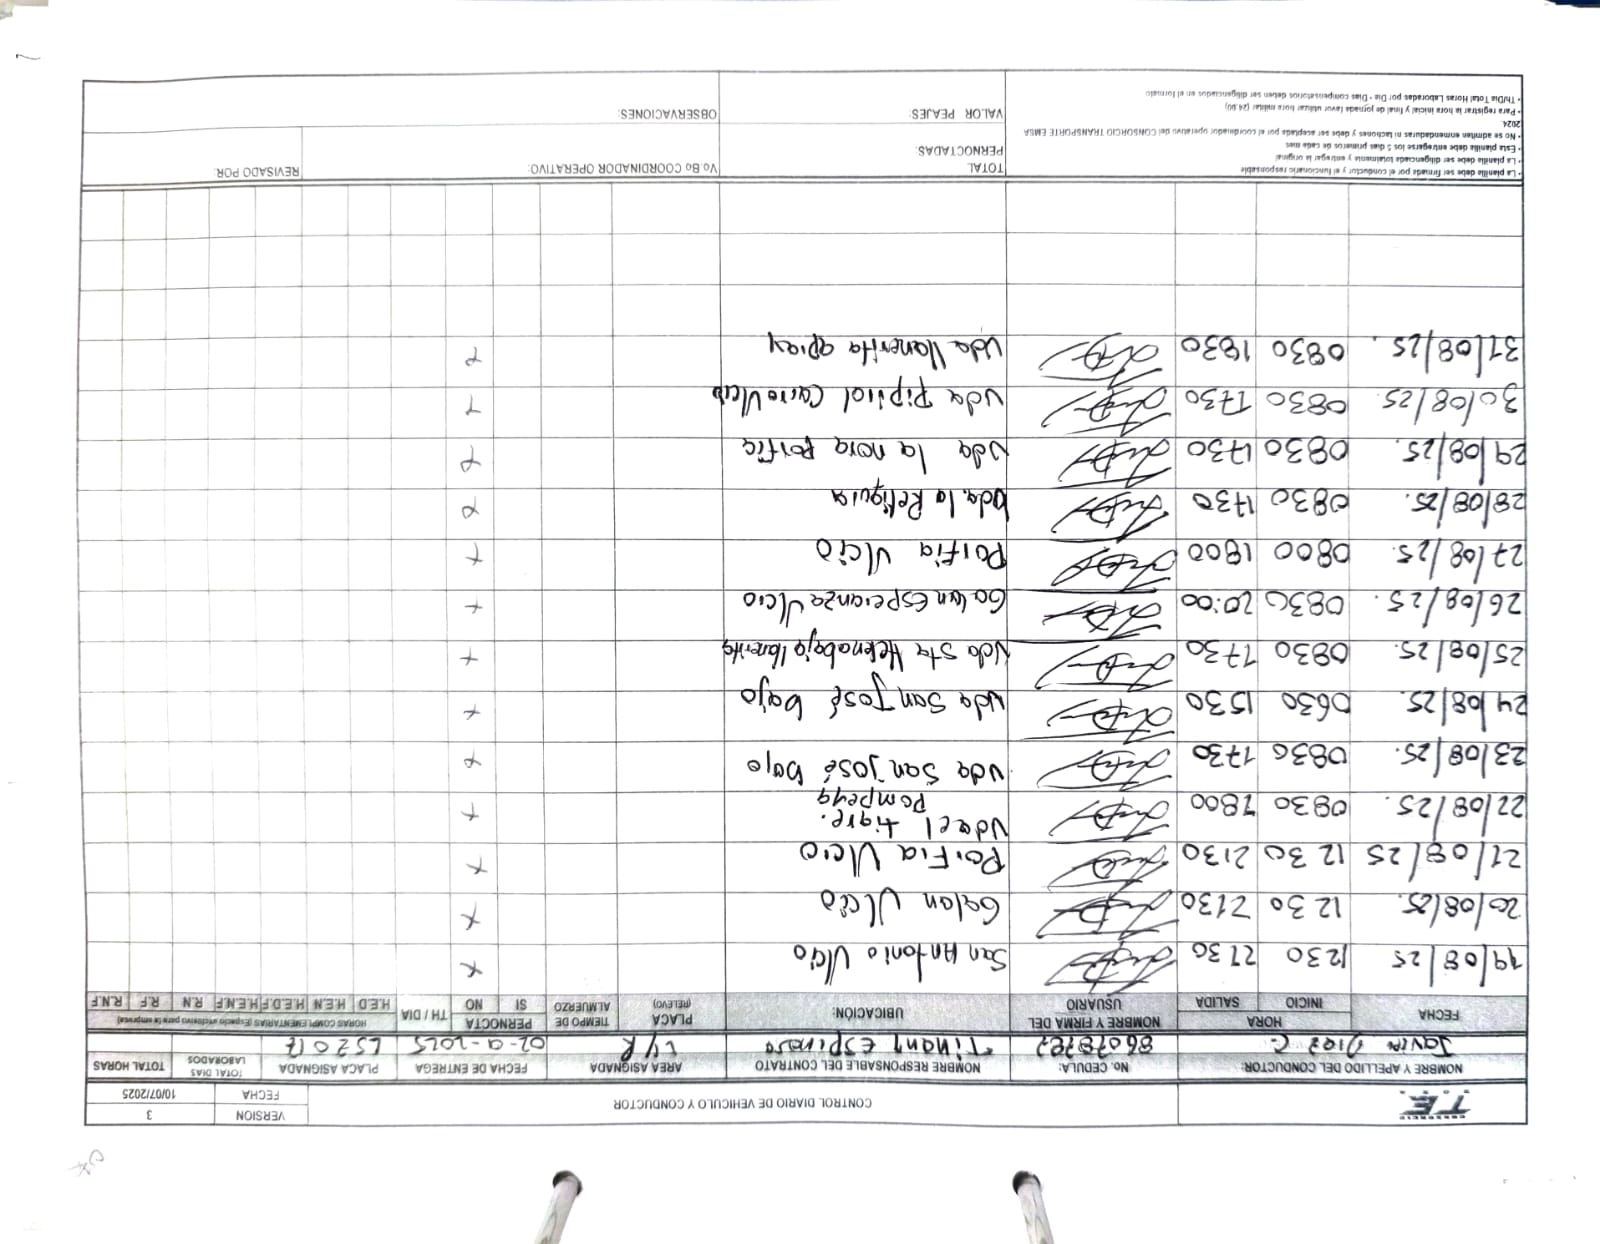 CONSORCIO
T.E.
CONTROL DIARIO DE VEHICULO Y CONDUCTOR
VERSION 3
FECHA 10/07/2025
NOMBRE Y APELLIDO DEL CONDUCTOR: No. CEDULA: NOMBRE RESPONSABLE DEL CONTRATO AREA ASIGNADA FECHA DE ENTREGA PLACA ASIGNADA TOTAL DIAS LABORADOS TOTAL HORAS
Javier Diaz C 86078787 Tinany Espinosa LYR 02-9-2025 LS2017
FECHA HORA INICIO SALIDA NOMBRE Y FIRMA DEL USUARIO UBICACIÓN: PLACA (RELEVO) TIEMPO DE ALMUERZO PERNOCTA SI NO TH / DIA HORAS COMPLEMENTARIAS (Espacio exclusivo para la empresa) H.E.D H.E.N H.E.D.F H.E.N.F R.N R.F R.N.F
19/08/25 1230 2130 San Antonio V/cio x
20/08/25. 1230 2130 Galan V/cio x
21/08/25 1230 2130 Porfia V/cio x
22/08/25. 0830 1800 Vda el tigre. Pompeya x
23/08/25. 0830 1730 Vda San José bajo x
24/08/25. 0630 1530 Vda San José bajo x
25/08/25. 0830 1730 Vda Sta Helena bajo llanerita x
26/08/25. 0830 20:00 Galan Esperanza V/cio x
27/08/25. 0800 1800 Porfia V/cio x
28/08/25. 0830 1730 Vda. la Reliquia x
29/08/25. 0830 1730 Vda la nora porfia x
30/08/25. 0830 1730 Vda Pipiral V/cio x
31/08/25. 0830 1830 Vda llanerita apiay x
• La planilla debe ser firmada por el conductor y el funcionario responsable
• La planilla debe ser diligenciada totalmente y entregar la original
• Esta planilla debe entregarse los 5 dias primeros de cada mes
• No se admiten enmendaduras ni tachones y debe ser aceptada por el coordinador operativo del CONSORCIO TRANSPORTE EMSA 2024
• Para registrar la hora inicial y final de jornada favor utilizar hora militar (24:00)
• Th/Dia Total Horas Laboradas por Dia - Dias compensatorios deben ser diligenciados en el formato
TOTAL PERNOCTADAS:
VALOR PEAJES:
Vo.Bo COORDINADOR OPERATIVO:
REVISADO POR:
OBSERVACIONES: